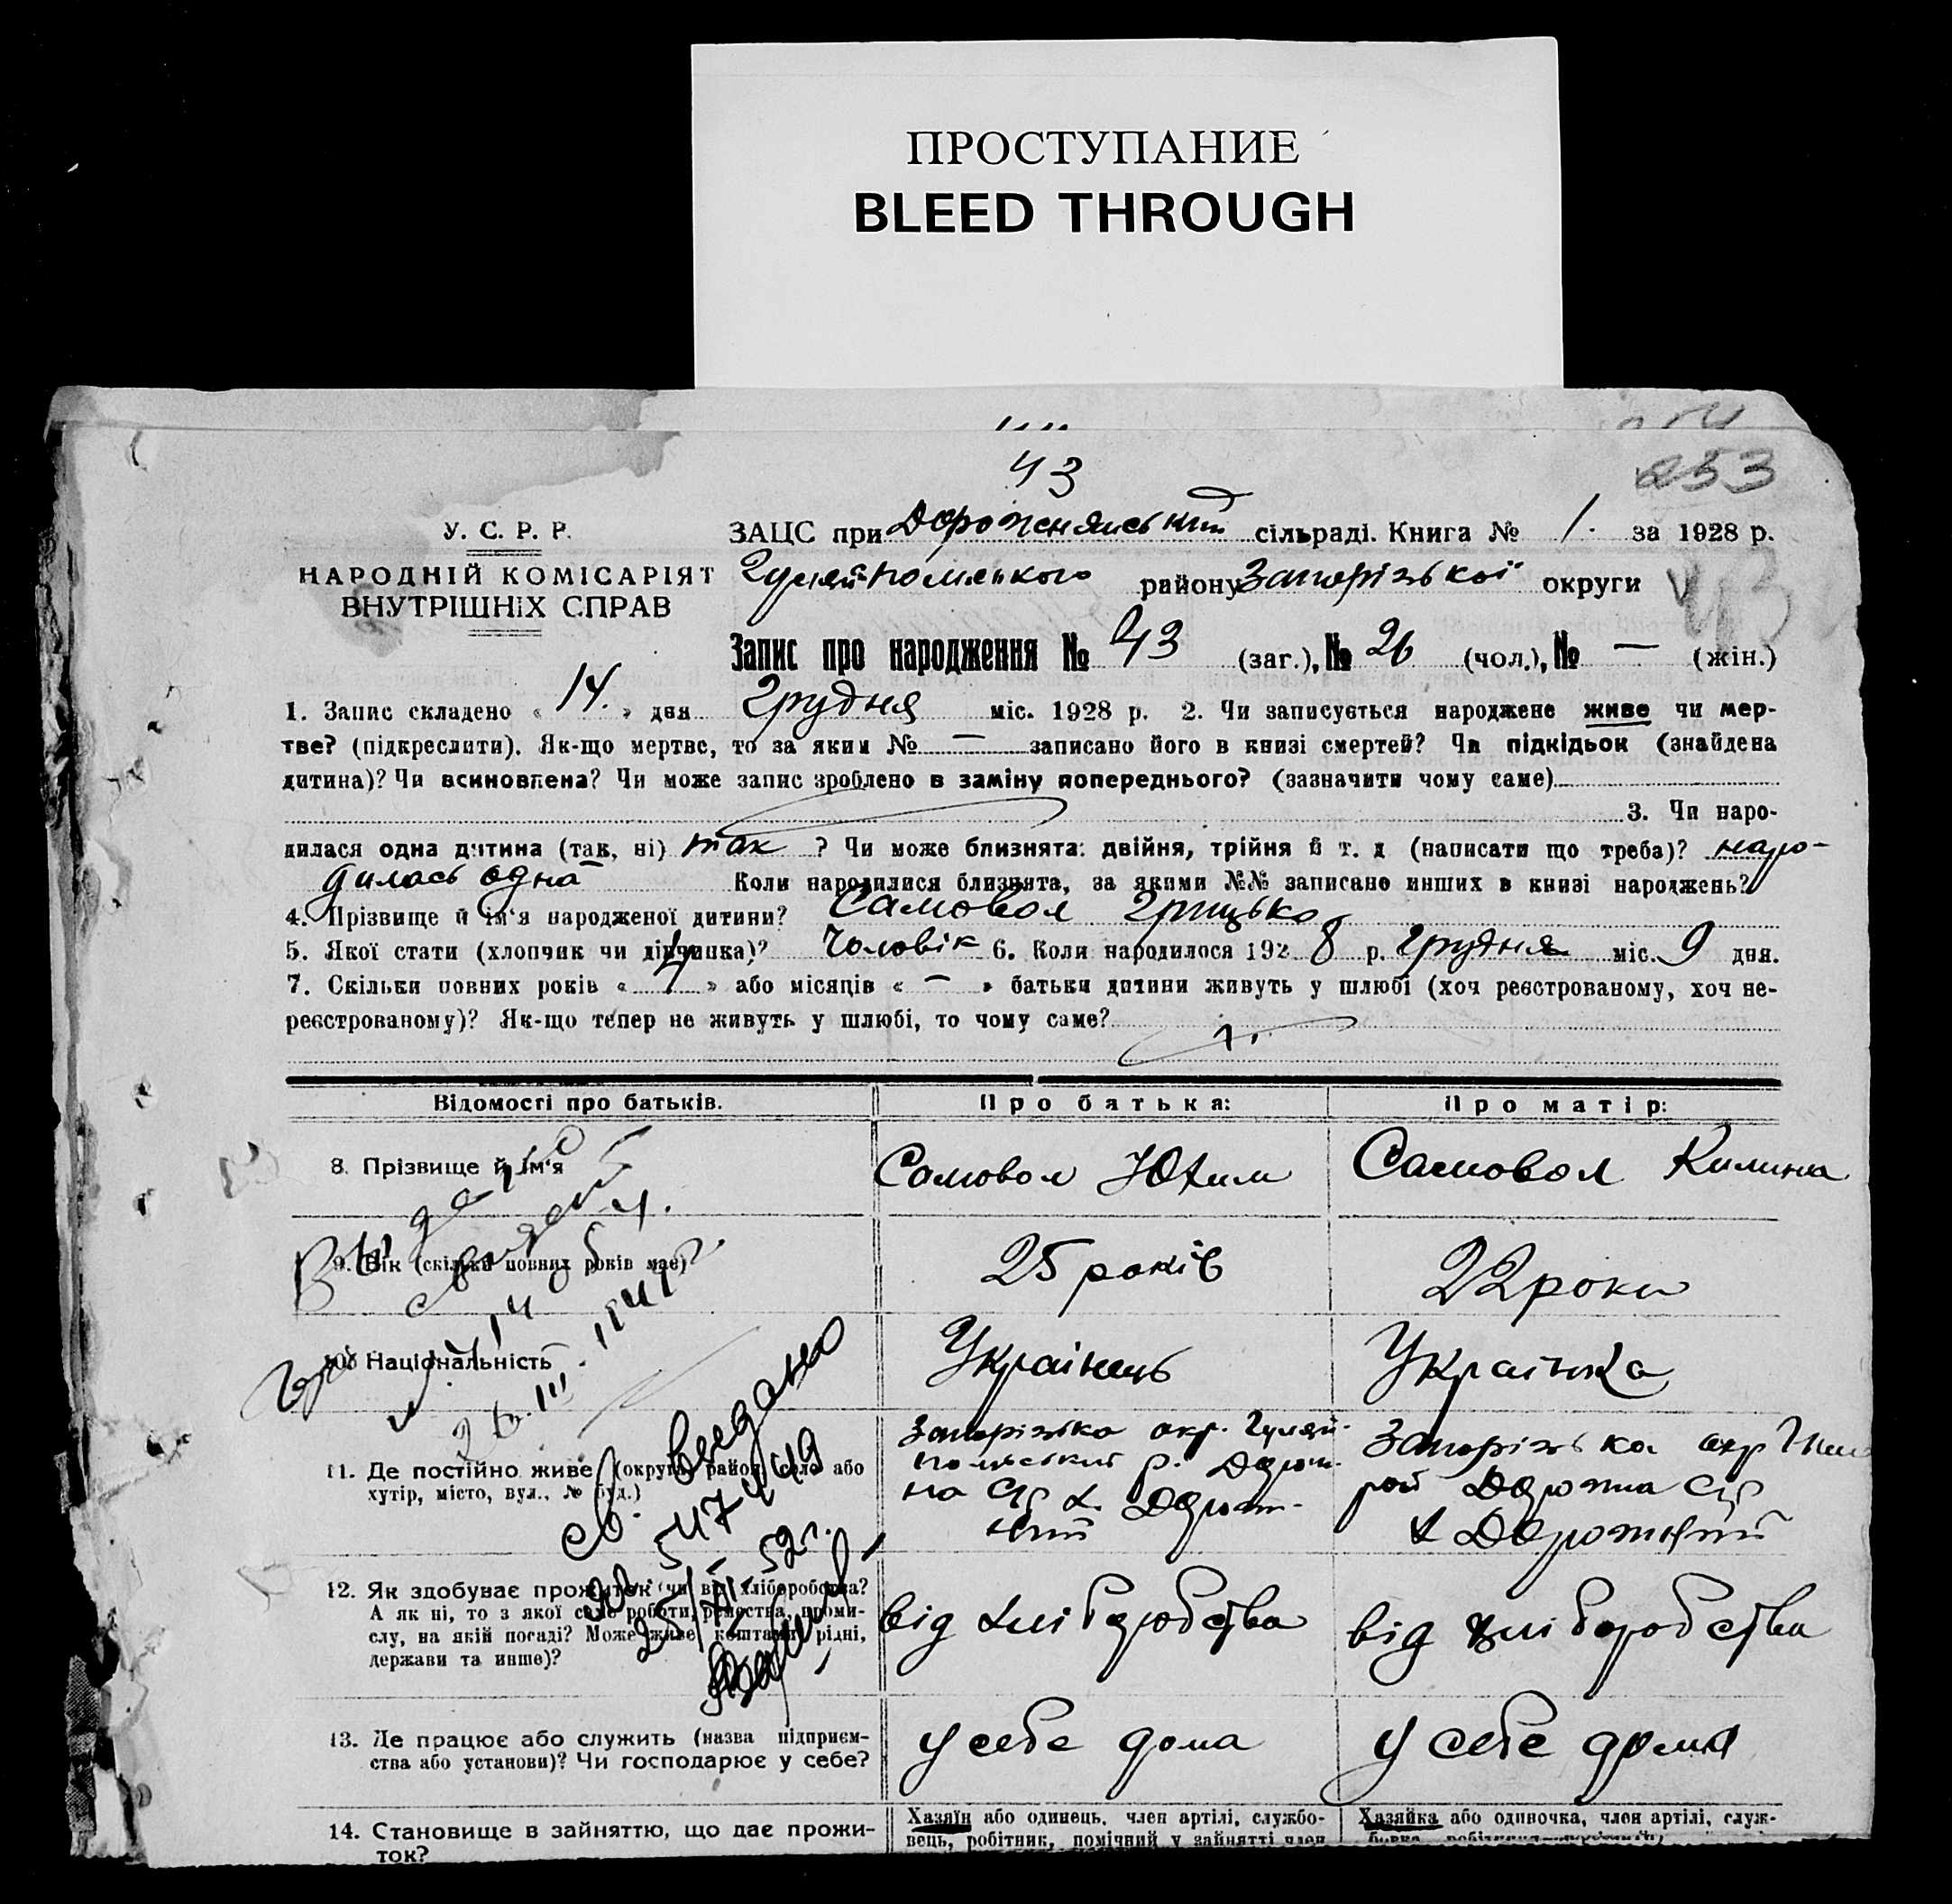 ПРОСТУПАНИЕ
BLEED THROUGH
43
253
У. С. Р. Р.
НАРОДНІЙ КОМІСАРІЯТ
ВНУТРІШНІХ СПРАВ
ЗАЦС при Дорожнянській сільраді. Книга № 1. за 1928 р.
Гуляйпольського району Запорізької округи
43
Запис про народження № 43 (заг.), № 26 (чол.), № — (жін.)
1. Запис складено « 14. » дня Грудня міс. 1928 р. 2. Чи записується народжене живе чи мер-
тве? (підкреслити). Як-що мертве, то за яким № — записано його в книзі смертей? Чи підкідьок (знайдена
дитина)? Чи всиновлена? Чи може запис зроблено в заміну попереднього? (зазначити чому саме)
3. Чи наро-
дилася одна дитина (так, ні) так ? Чи може близнята: двійня, трійня й т. д (написати що треба)? наро-
дилась одна Коли народилися близнята, за якими №№ записано инших в книзі народжень?
4. Прізвище й ім'я народженої дитини? Самовол Грицько
5. Якої стати (хлопчик чи дівчинка)? Чоловік 6. Коли народилося 192 8 р. Грудня міс. 9 дня.
7. Скільки повних років « 4 » або місяців « — » батьки дитини живуть у шлюбі (хоч реєстрованому, хоч не-
реєстрованому)? Як-що тепер не живуть у шлюбі, то чому саме?
Відомості про батьків. Про батька: Про матір:
8. Прізвище й ім'я Самовол Юхим Самовол Килина
9. Вік (скільки повних років має) 25 років 22 роки
10. Національність Українець Українка
11. Де постійно живе (округа, район, село або
хутір, місто, вул., № буд.)
Запорізька окр. Гуляй-
польський р. Дорож-
на С/р х. Дорож-
ній
Запорізька окр
рай Дорожна С/р
х Дорожній
12. Як здобуває прожиток (чи від хліборобства?
А як ні, то з якої саме роботи, ремества, проми-
слу, на якій посаді? Може живе коштами рідні,
держави та инше)?
від хліборобства від хліборобства
13. Де працює або служить (назва підприєм-
ства або установи)? Чи господарює у себе?
у себе дома у себе дома
14. Становище в зайняттю, що дає прожи-
ток?
Хазяїн або одинець, член артілі, службо-
вець, робітник, помічний у зайнятті член
Хазяйка або одиночка, член артілі, служ-
Видано
свидет
26.III.
св. видано